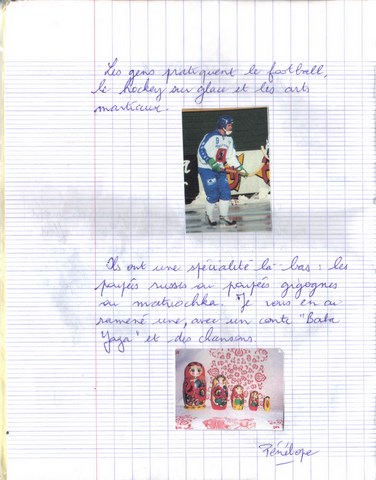 Les gens pratiquent le football,
le hockey sur glace et les arts
martiaux.
Ils ont une spécialité là-bas : les
poupées russes ou poupées gigognes
ou matriochka. Je vous en ai
ramené une, avec un conte "Baba
Yaga" et des chansons.
Pénélope